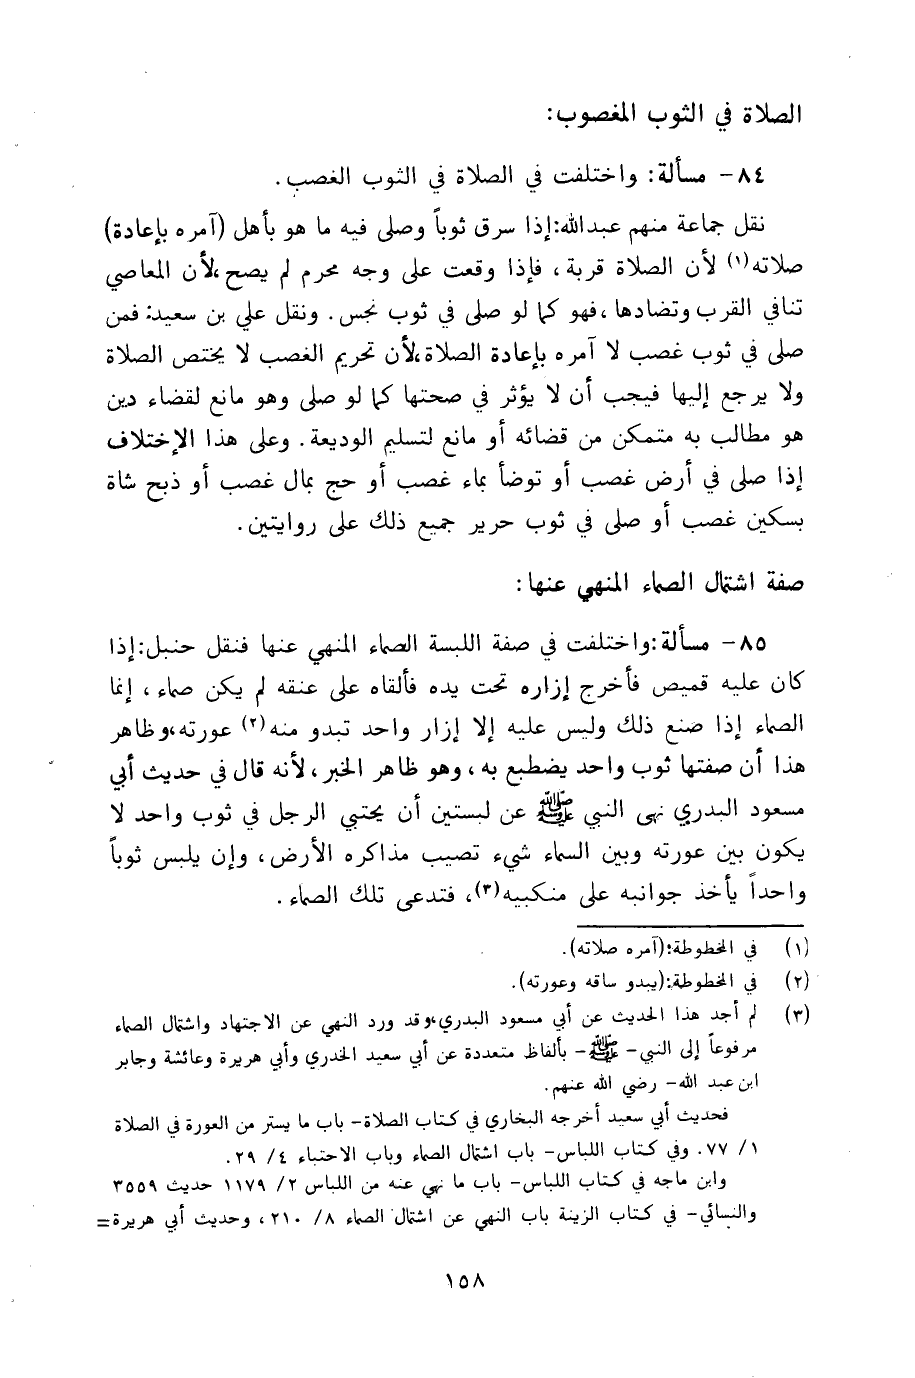 الصلاة في الثوب المغصوب:
٨٤- مسألة: واختلفت في الصلاة في الثوب الغصب.
نقل جماعة منهم عبدالله:إذا سرق ثوباً وصلى فيه ما هو بأهل (آمره بإعادة)
صلاته(١) لأن الصلاة قربة، فإذا وقعت على وجه محرم لم يصح،لأن المعاصي
تنافي القرب وتضادها،فهو كما لو صلى في ثوب نجس. ونقل علي بن سعيد: فمن
صلى في ثوب غصب لا آمره بإعادة الصلاة،لأن تحريم الغصب لا يختص الصلاة
ولا يرجع إليها فيجب أن لا يؤثر في صحتها كما لو صلى وهو مانع لقضاء دين
هو مطالب به متمكن من قضائه أو مانع لتسليم الوديعة. وعلى هذا الإختلاف
إذا صلى في أرض غصب أو توضأ بماء غصب أو حج بمال غصب أو ذبح شاة
بسكين غصب أو صلى في ثوب حرير جميع ذلك على روايتين.
صفة اشتمال الصماء المنهي عنها:
٨٥- مسألة:واختلفت في صفة اللبسة الصماء المنهي عنها فنقل حنبل:إذا
كان عليه قميص فأخرج إزاره تحت يده فألقاه على عنقه لم يكن صماء، إنما
الصماء إذا صنع ذلك وليس عليه إلا إزار واحد تبدو منه(٢) عورته،وظاهر
هذا أن صفتها ثوب واحد يضطبع به، وهو ظاهر الخبر،لأنه قال في حديث أبي
مسعود البدري نهى النبي ﷺ عن لبستين أن يحتبي الرجل في ثوب واحد لا
يكون بين عورته وبين السماء شيء تصيب مذاكره الأرض، وإن يلبس ثوباً
واحداً يأخذ جوانبه على منكبيه(٣)، فتدعى تلك الصماء.
(١) في المخطوطة:(آمره صلاته).
(٢) في المخطوطة:(يبدو ساقه وعورته).
(٣) لم أجد هذا الحديث عن أبي مسعود البدري،وقد ورد النهي عن الاجتهاد واشتمال الصماء
مرفوعاً إلى النبي- ﷺ- بألفاظ متعددة عن أبي سعيد الخدري وأبي هريرة وعائشة وجابر
ابن عبد الله- رضي الله عنهم.
فحديث أبي سعيد أخرجه البخاري في كتاب الصلاة- باب ما يستر من العورة في الصلاة
١/ ٧٧. وفي كتاب اللباس- باب اشتمال الصماء وباب الاحتباء ٤/ ٢٩.
وابن ماجه في كتاب اللباس- باب ما نهي عنه من اللباس ٢/ ١١٧٩ حديث ٣٥٥٩
والنسائي- في كتاب الزينة باب النهي عن اشتمال الصماء ٨/ ٢١٠، وحديث أبي هريرة=
١٥٨